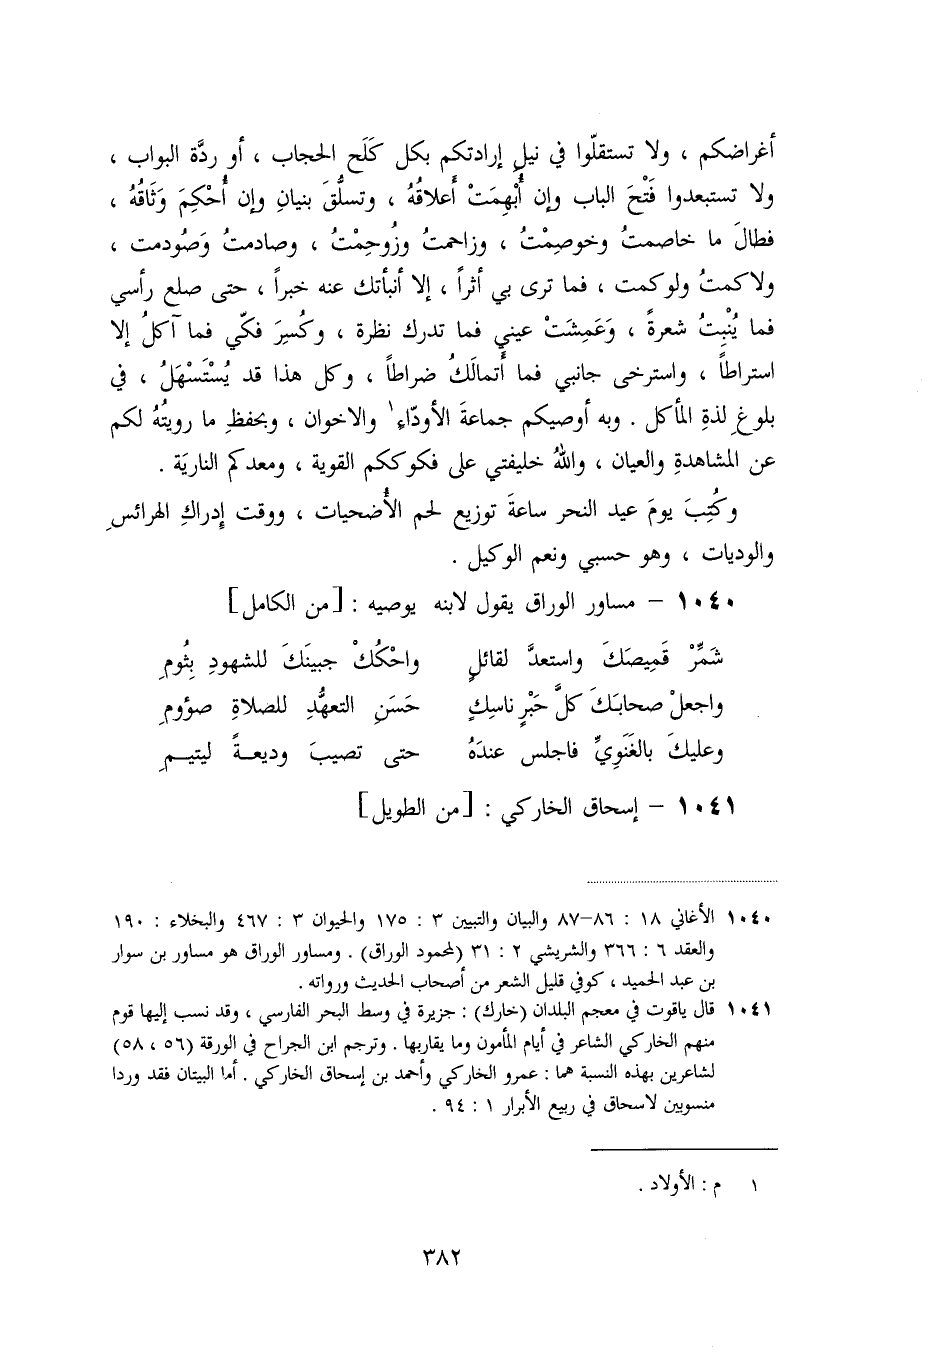 أغراضكم ، ولا تستقلّوا في نيلِ إرادتكم بكل كَلَحِ الحجاب ، أو ردَّة البواب ،
ولا تستبعدوا فَتْحَ الباب وإن أُبْهِمَتْ أَعلاقُهُ ، وتسلُّقَ بنيانِ وإن أُحْكِمَ وَثَاقُهُ ،
فطالَ ما خاصمتُ وخوصِمْتُ ، وزاحمتُ وزُوحِمْتُ ، وصادمتُ وَصُودمت ،
ولاكمتُ ولوكمت ، فما ترى بي أثراً ، إلا أنبأتك عنه خبراً ، حتى صلع رأسي
فما يُنْبِتُ شعرةً ، وَعَمِشَتْ عيني فما تدرك نظرة ، وكُسِرَ فكّي فما آكلُ إلا
استراطاً ، واسترخى جانبي فما أَتمالَكُ ضراطاً ، وكل هذا قد يُسْتَسْهَلُ ، في
بلوغِ لذةِ المأكل . وبه أوصيكم جماعةَ الأودّاءِ ١ والاخوان ، وبحفظِ ما رويتُهُ لكم
عن المشاهدةِ والعيان ، واللهُ خليفتي على فكوككم القوية ، ومعدكم الناريَة .
وكُتِبَ يومَ عيد النحر ساعةَ توزيع لحم الأُضحيات ، ووقت إدراكِ الهرائسِ
والوديات ، وهو حسبي ونعم الوكيل .
١٠٤٠ – مساور الوراق يقول لابنه يوصيه : [من الكامل]
شَمِّرْ قَمِيصَكَ واستعدَّ لقائلٍ واحْكُكْ جبينَكَ للشهودِ بِثُومِ
واجعلْ صحابَكَ كلَّ حَبْرٍ ناسِكٍ حَسَنِ التعهُّدِ للصلاةِ صؤومِ
وعليكَ بالغَنَوِيِّ فاجلس عندَهُ حتى تصيبَ وديعةً ليتيمِ
١٠٤١ – إسحاق الخاركي : [من الطويل]
١٠٤٠ الأغاني ١٨ : ٨٦–٨٧ والبيان والتبيين ٣ : ١٧٥ والحيوان ٣ : ٤٦٧ والبخلاء : ١٩٠
والعقد ٦ : ٣٦٦ والشريشي ٢ : ٣١ (لمحمود الوراق) . ومساور الوراق هو مساور بن سوار
بن عبد الحميد ، كوفي قليل الشعر من أصحاب الحديث ورواته .
١٠٤١ قال ياقوت في معجم البلدان (خارك) : جزيرة في وسط البحر الفارسي ، وقد نسب إليها قوم
منهم الخاركي الشاعر في أيام المأمون وما يقاربها . وترجم ابن الجراح في الورقة (٥٦ ، ٥٨)
لشاعرين بهذه النسبة هما : عمرو الخاركي وأحمد بن إسحاق الخاركي . أما البيتان فقد وردا
منسوبين لاسحاق في ربيع الأبرار ١ : ٩٤ .
١ م : الأولاد .
٣٨٢